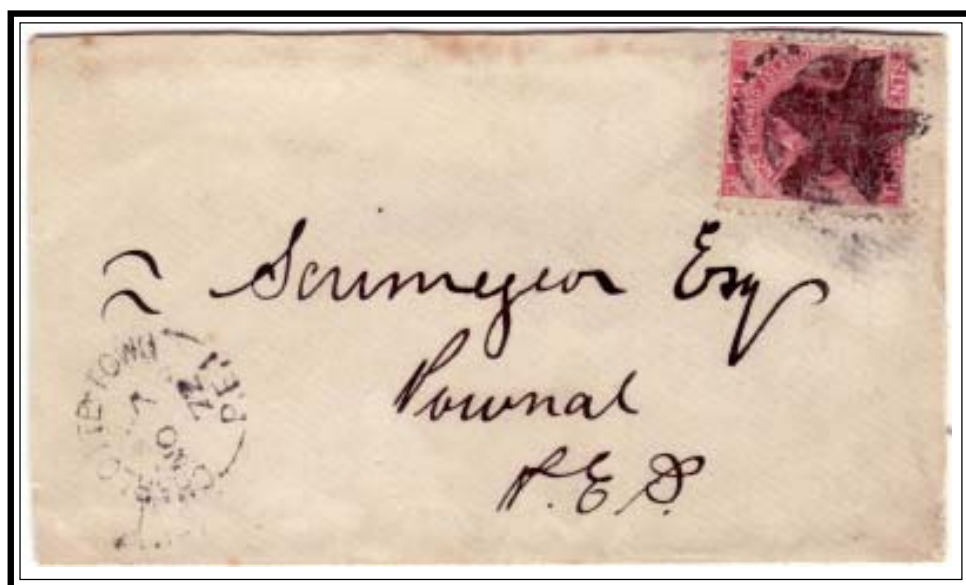 Scrimegeor Esq
Pownal
P.E.I.
CHARLOTTETOWN
NO 7
77
P.E.I.